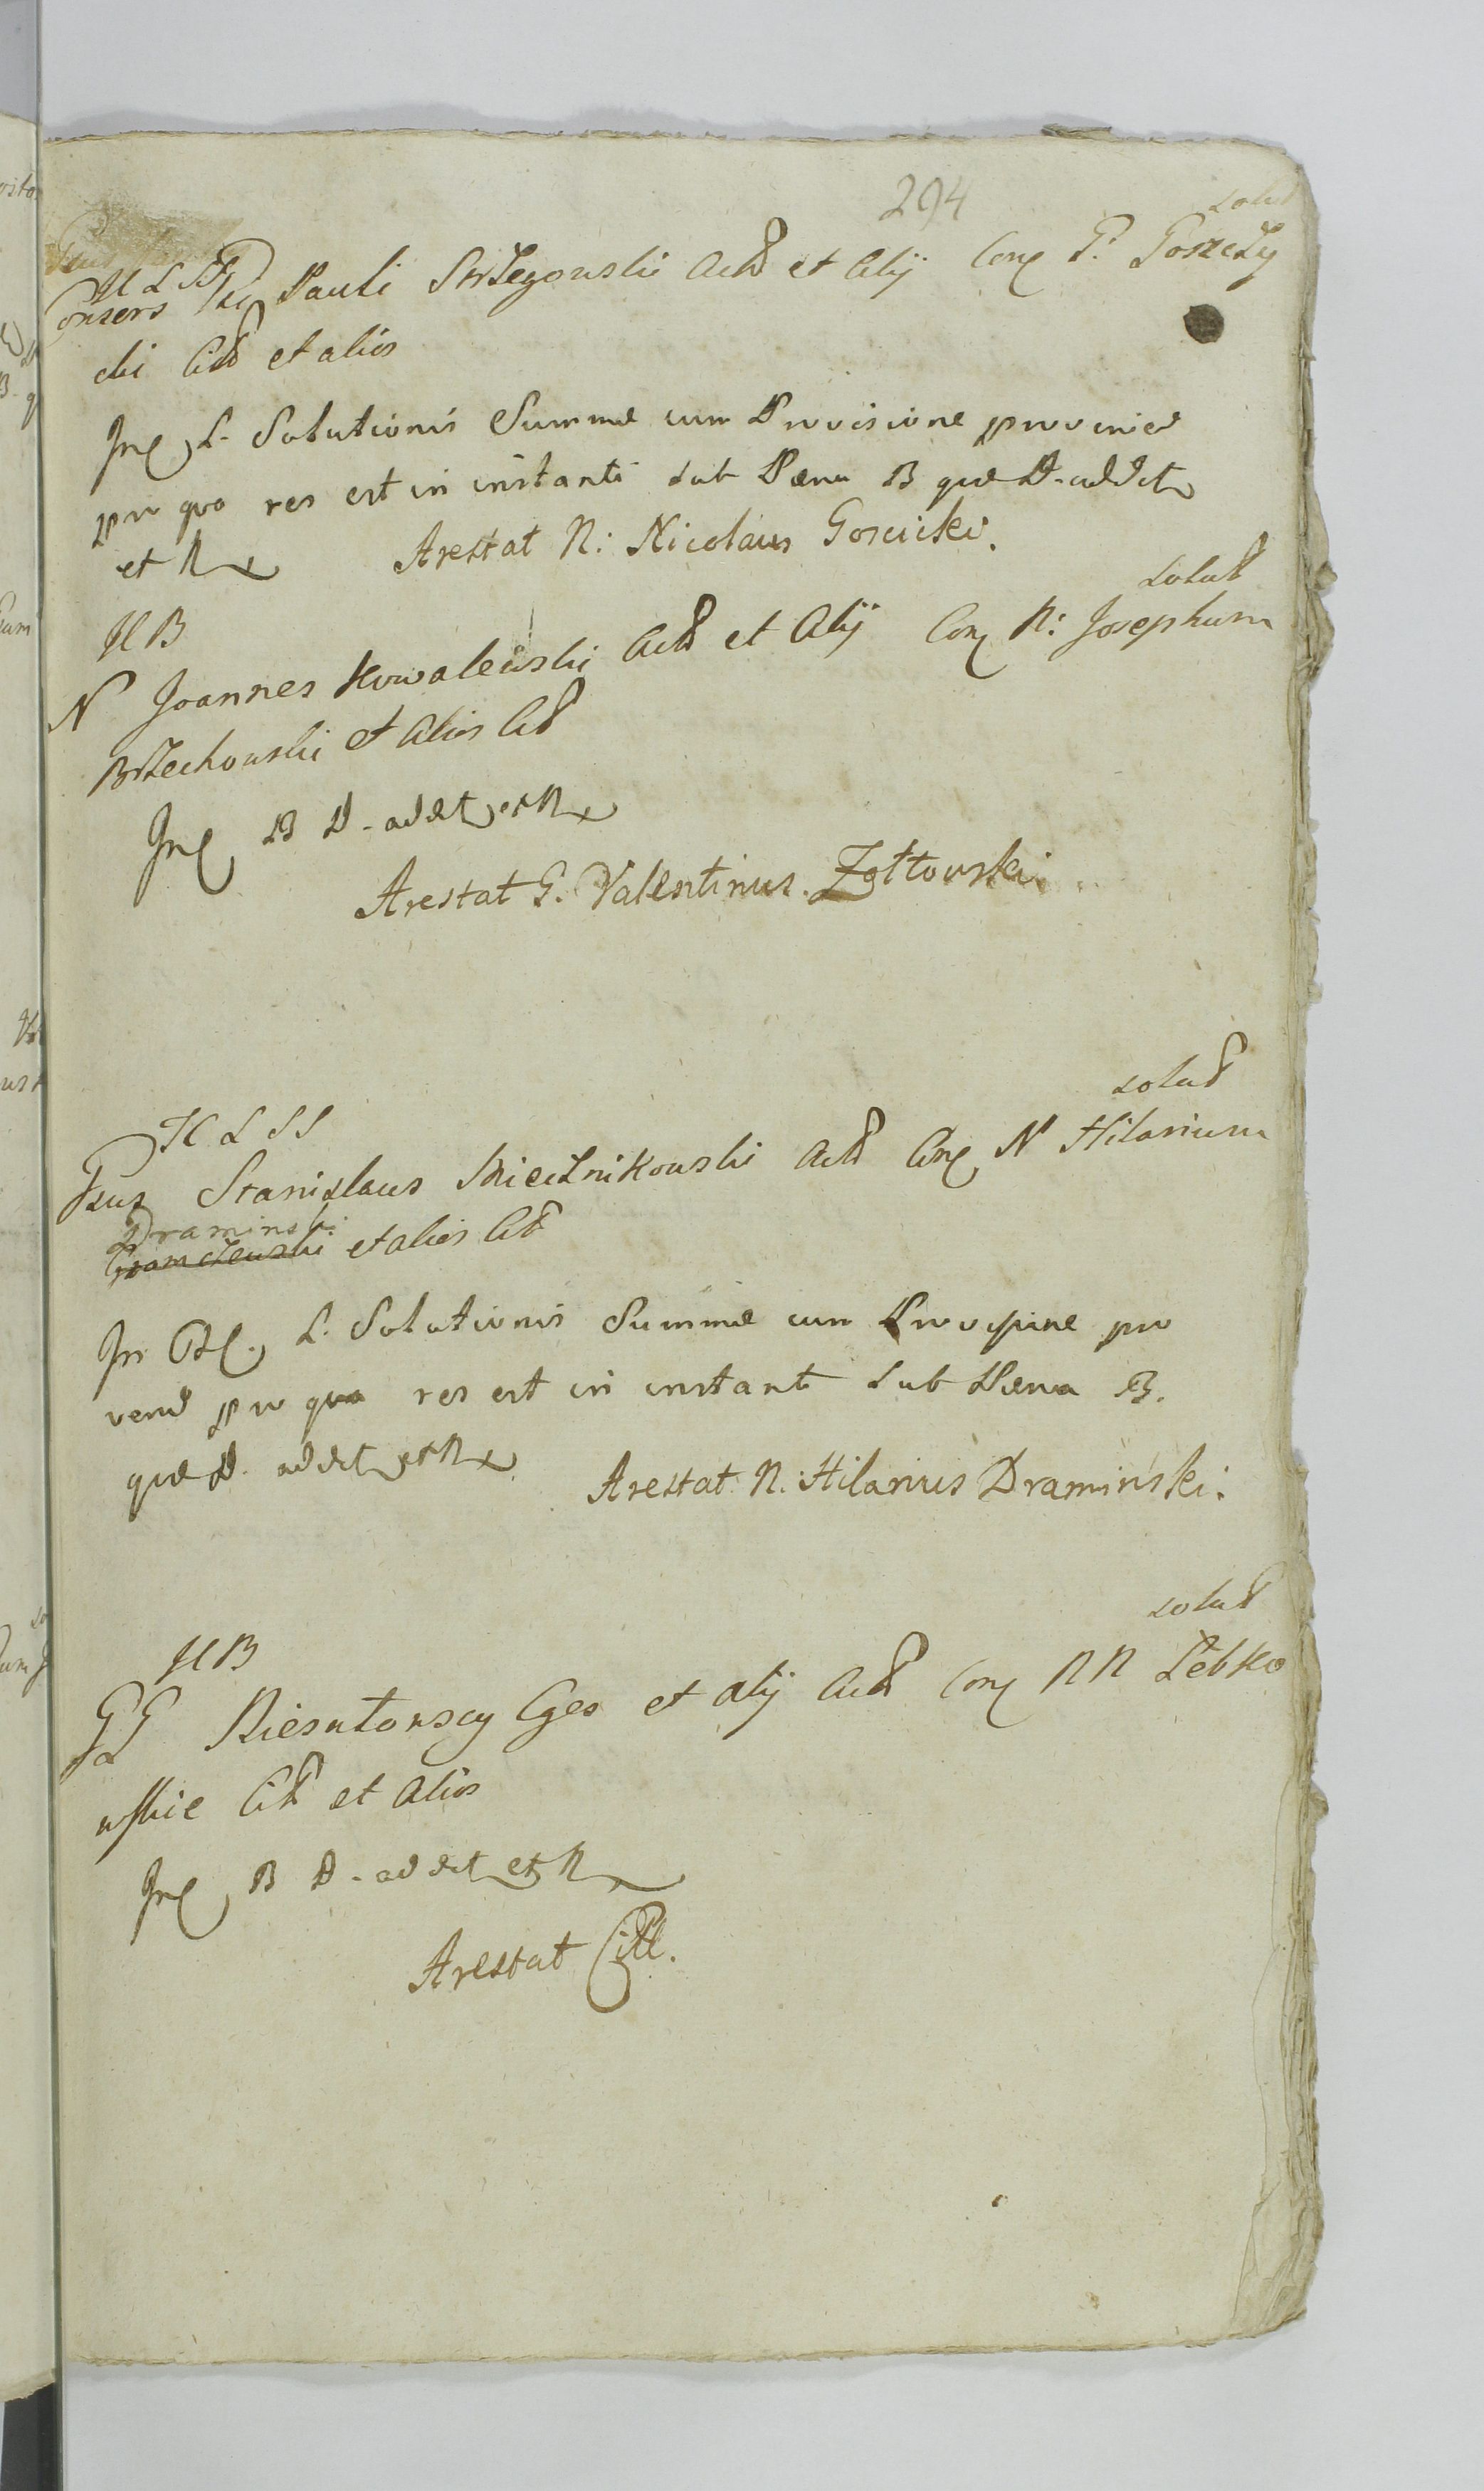 294
solut
H L SS
Consors Pauli Strzegowski Act et Alij Con G. Goszczy
cki Cit et alios
In L. Solutionis Summæ cum Provisione provenien
pro quo res est in instanti sub Pæna B que D. addct
et R
Arestat N: Nicolaus Goscicki.
H B
solut
N Joannes Kowalewski Act et Alij Con N: Josephum
Brzechowski et Alios Cit
In B D. addct et R
Arestat G. Valentinus Zołtowski.
H L SS
solut
Gsus Stanislaus Miecznikowski Act Con N Hilarium
Draminski
et alios Cit
In L. Solutionis Summæ cum Provisione pro
vend pro quo res est in instanti sub Pæna B.
que D. addct et R
Arestat N. Hilarius Dramiński.
H B
solut
GG Niesułowscy Cges et Alij Act Con NN Łebko
wskie Cit et Alios
In B D. addct et R
Arestat Citt.